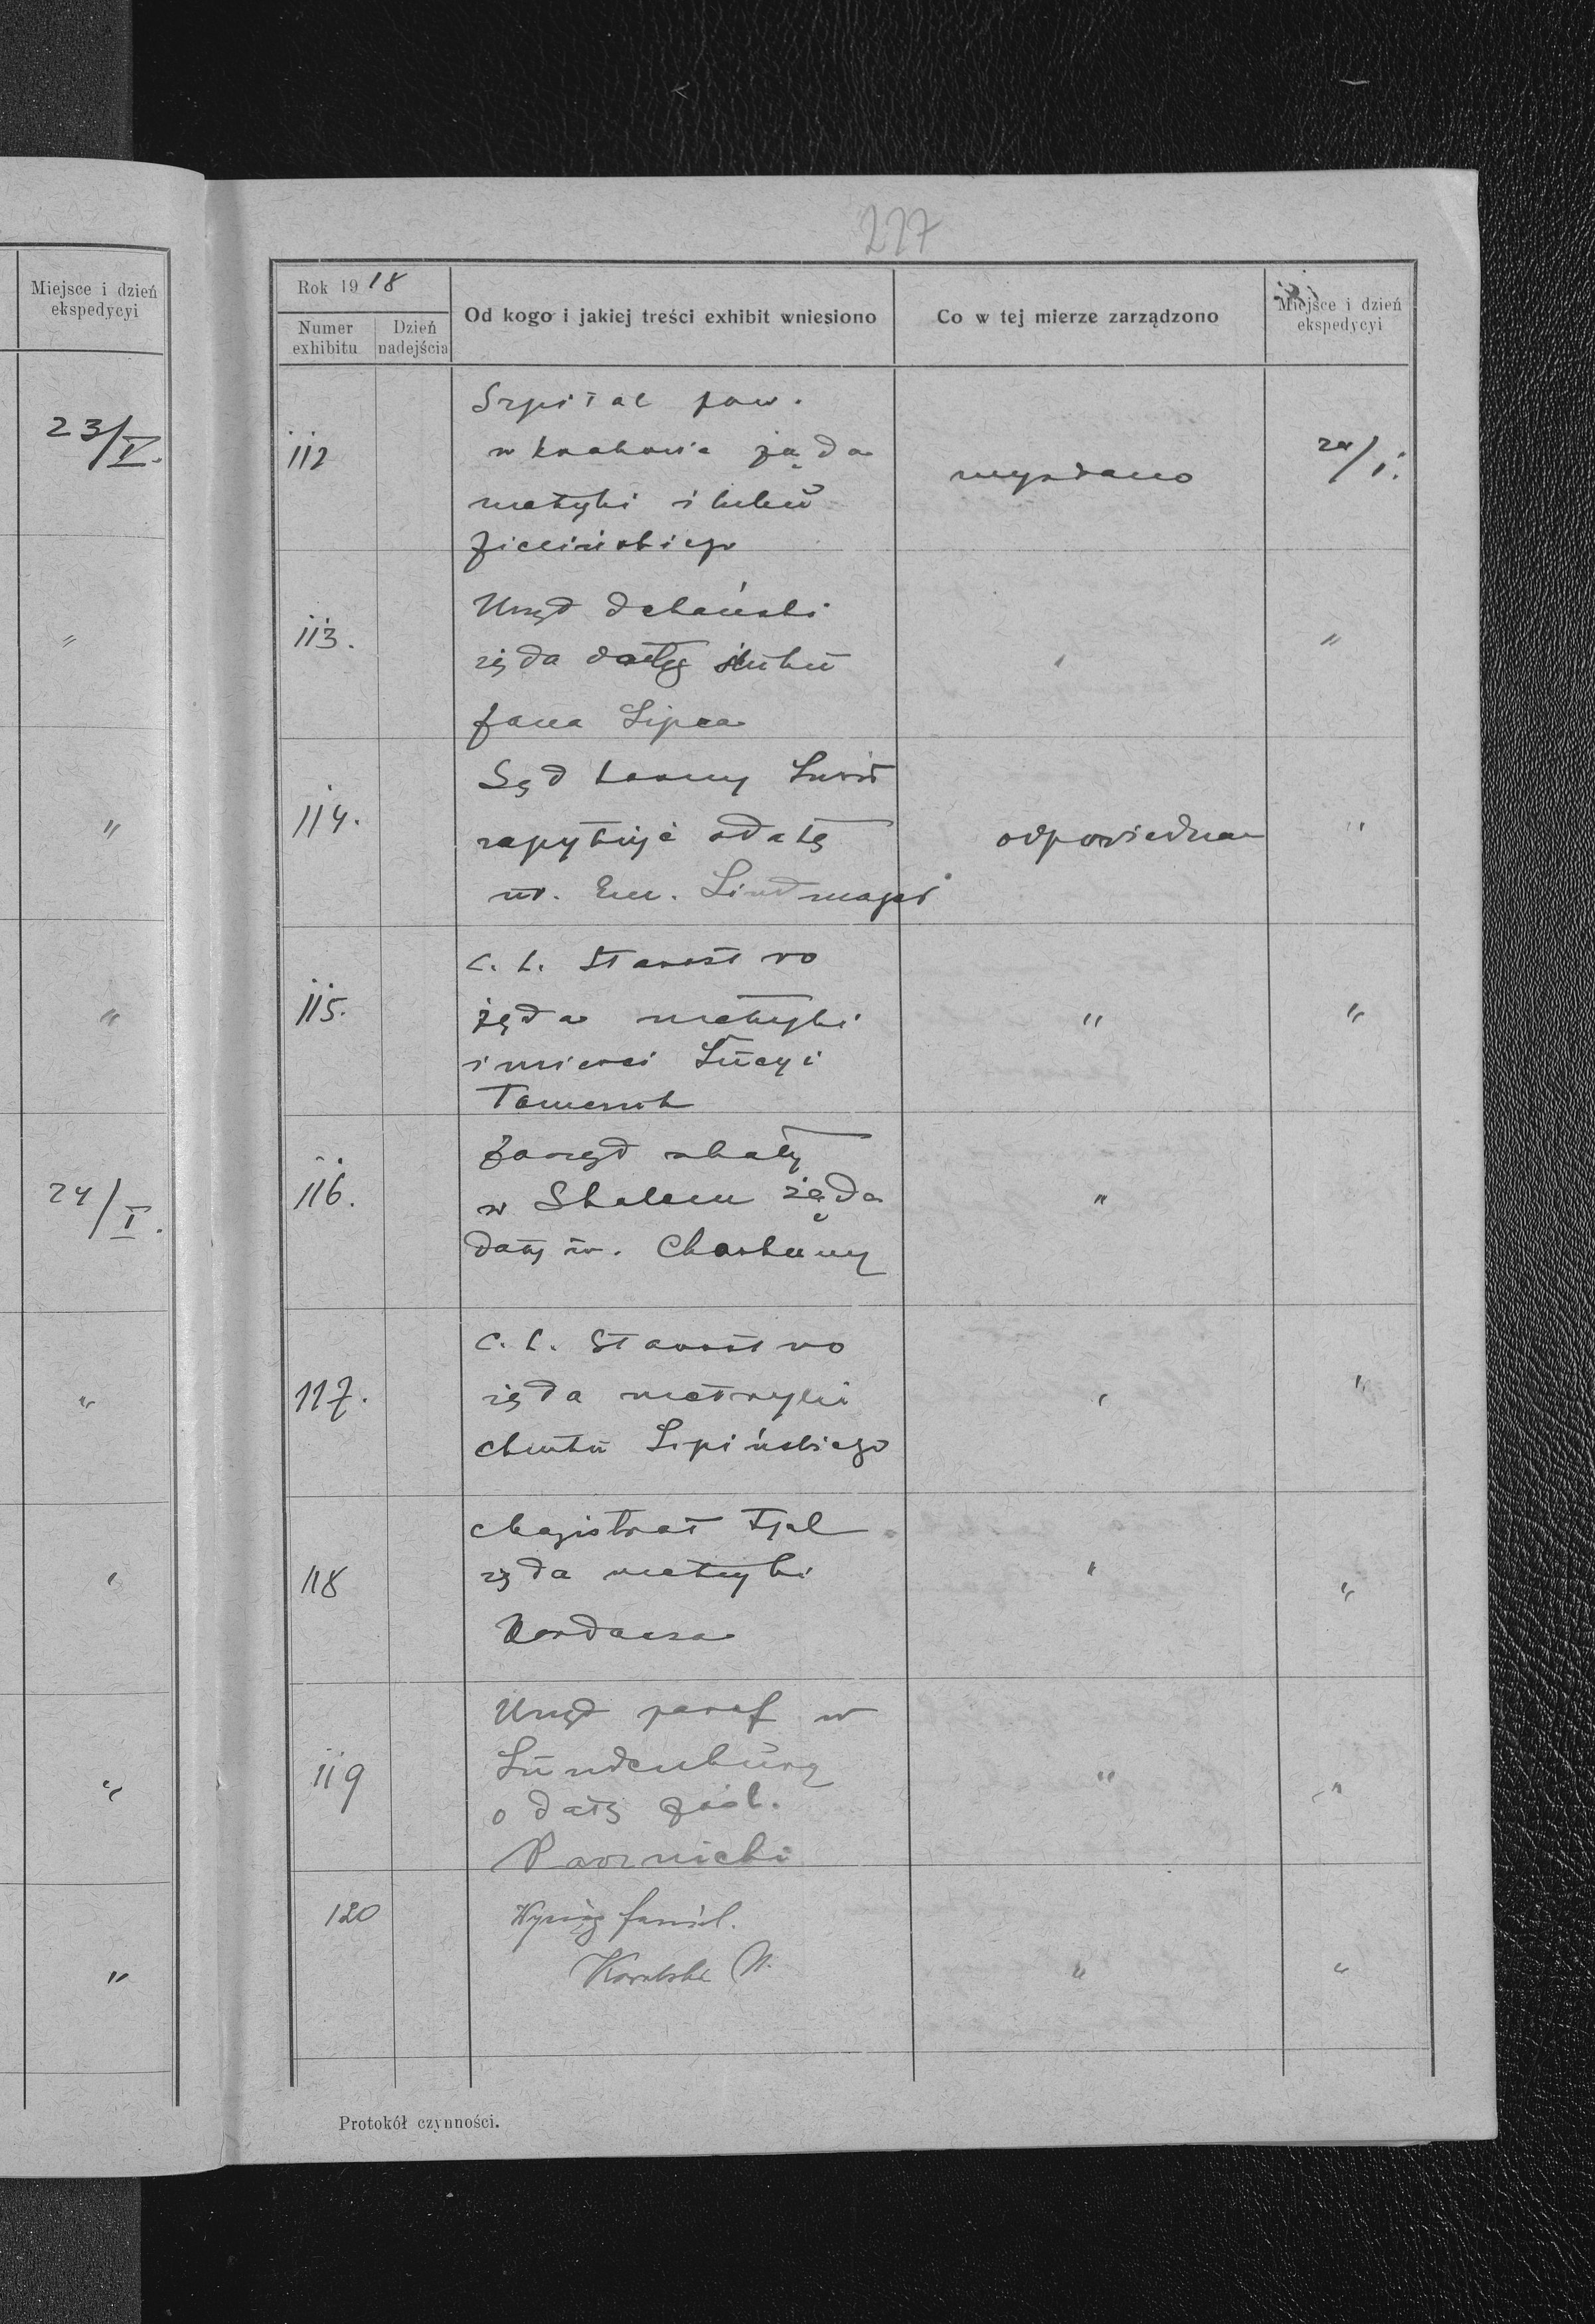 Miejsce i dzień
ekspedycyi
23/V.
"
"
"
24/I.
"
"
"
"
227
Rok 1918
Numer
exhibitu
Dzień
nadejścia
Od kogo i jakiej treści exhibit wniesiono
Co w tej mierze zarządzono
Miejsce i dzień
ekspedycyi
112
Szpital pow.
w Krakowie żąda
metryki ślubu
Zielińskiego
wysłano
24/I.
113.
Urząd dekański
żąda datę ślubu
Jana Lipca
"
"
114.
Sąd karny Lwów
zapytuje o datę
ur. Em. Lindmajer
odpowiedziano
"
115.
C. k. Starostwo
żąda metryki
śmierci Łucyi
"
"
116.
Zarząd szkoły
w żąda
daty ur.
"
117.
C. k. Starostwo
żąda metryki
chrztu Lipińskiego
"
"
118
Magistrat
żąda metryki
Kordasza
"
"
119
Urząd paraf w
Lundenburg
o datę zaśl.
"
"
120
Wyciąg famil.
"
"
Protokół czynności.